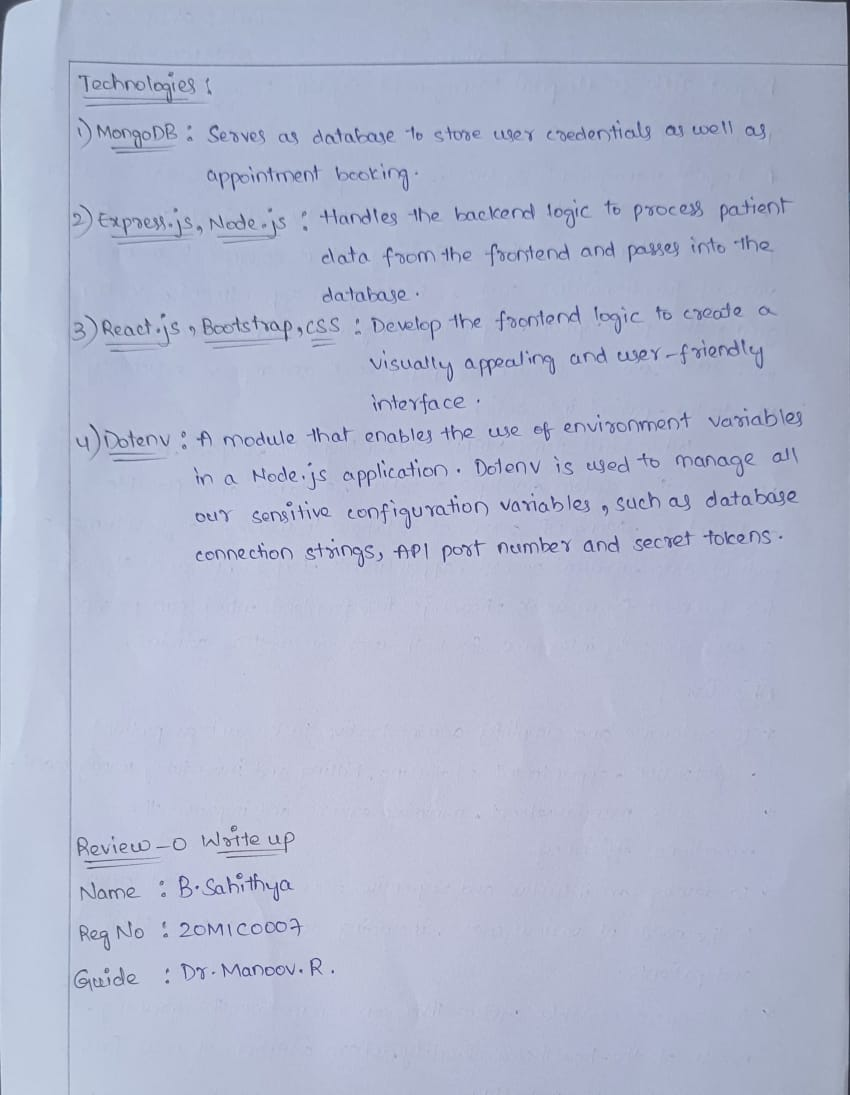 Technologies :
1) MongoDB : Serves as database to store user credentials as well as
appointment booking.
2) Express.js, Node.js : Handles the backend logic to process patient
data from the frontend and passes into the
database.
3) React.js, Bootstrap, CSS : Develop the frontend logic to create a
visually appealing and user-friendly
interface.
4) Dotenv : A module that enables the use of environment variables
in a Node.js application. Dotenv is used to manage all
our sensitive configuration variables, such as database
connection strings, API port number and secret tokens.
Review-0 Write up
Name : B. Sahithya
Reg No : 20MIC0007
Guide : Dr. Manoov. R.